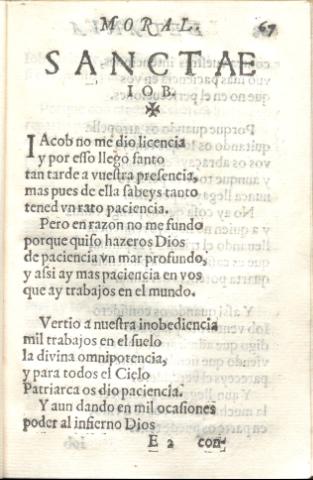 MORAL. 67
SANCTAE
IOB.
IAcob no me dio licencia
y por esso llego santo
tan tarde a vuestra presencia,
mas pues de ella sabeys tanto
tened vn rato paciencia.
Pero en razon no me fundo
porque quiso hazeros Dios
de paciencia vn mar profundo,
y assi ay mas paciencia en vos
que ay trabajos en el mundo.
Vertio a nuestra inobediencia
mil trabajos en el suelo
la divina omnipotencia,
y para todos el Cielo
Patriarca os dio paciencia.
Y aun dando en mil ocasiones
poder al infierno Dios
E 2 con-